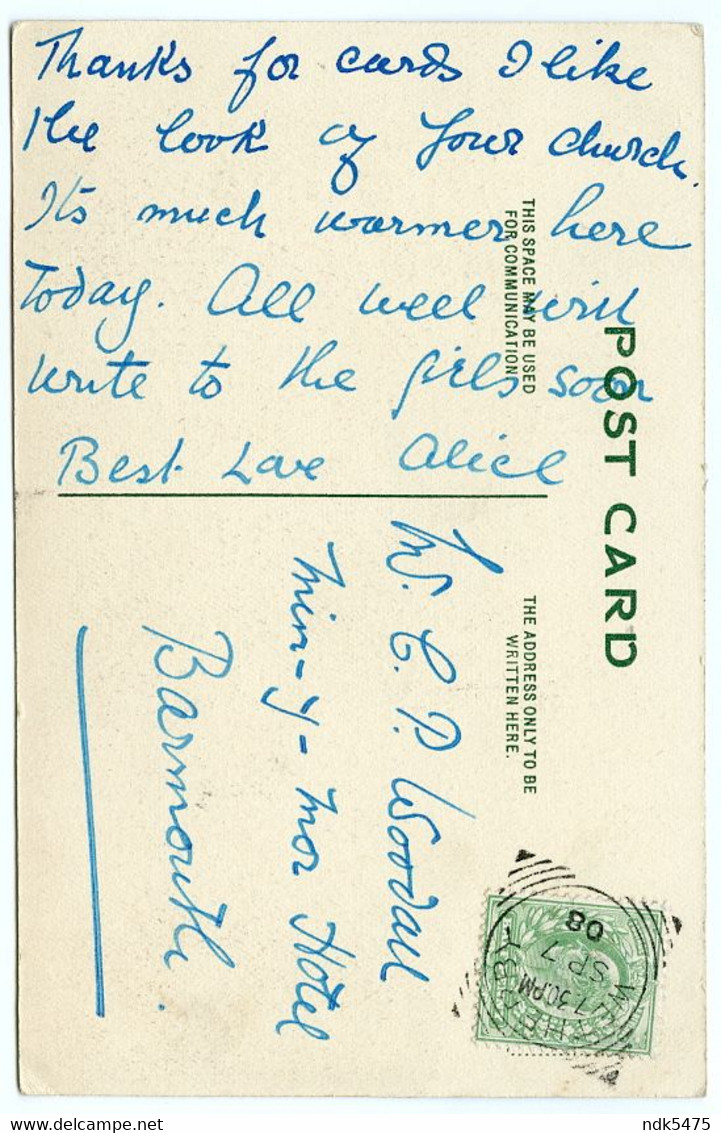 Thanks for cards I like
the look of your church.
Its much warmer here
today. All well will
write to the girls soon
Best Love Alice
THIS SPACE MAY BE USED
FOR COMMUNICATION
POST CARD
THE ADDRESS ONLY TO BE
WRITTEN HERE.
W. C. P. Woodall
Min-y-mor Hotel
Barmouth.
WETHERBY
7.30PM
SP 7
08
delcampe.net
ndk5475